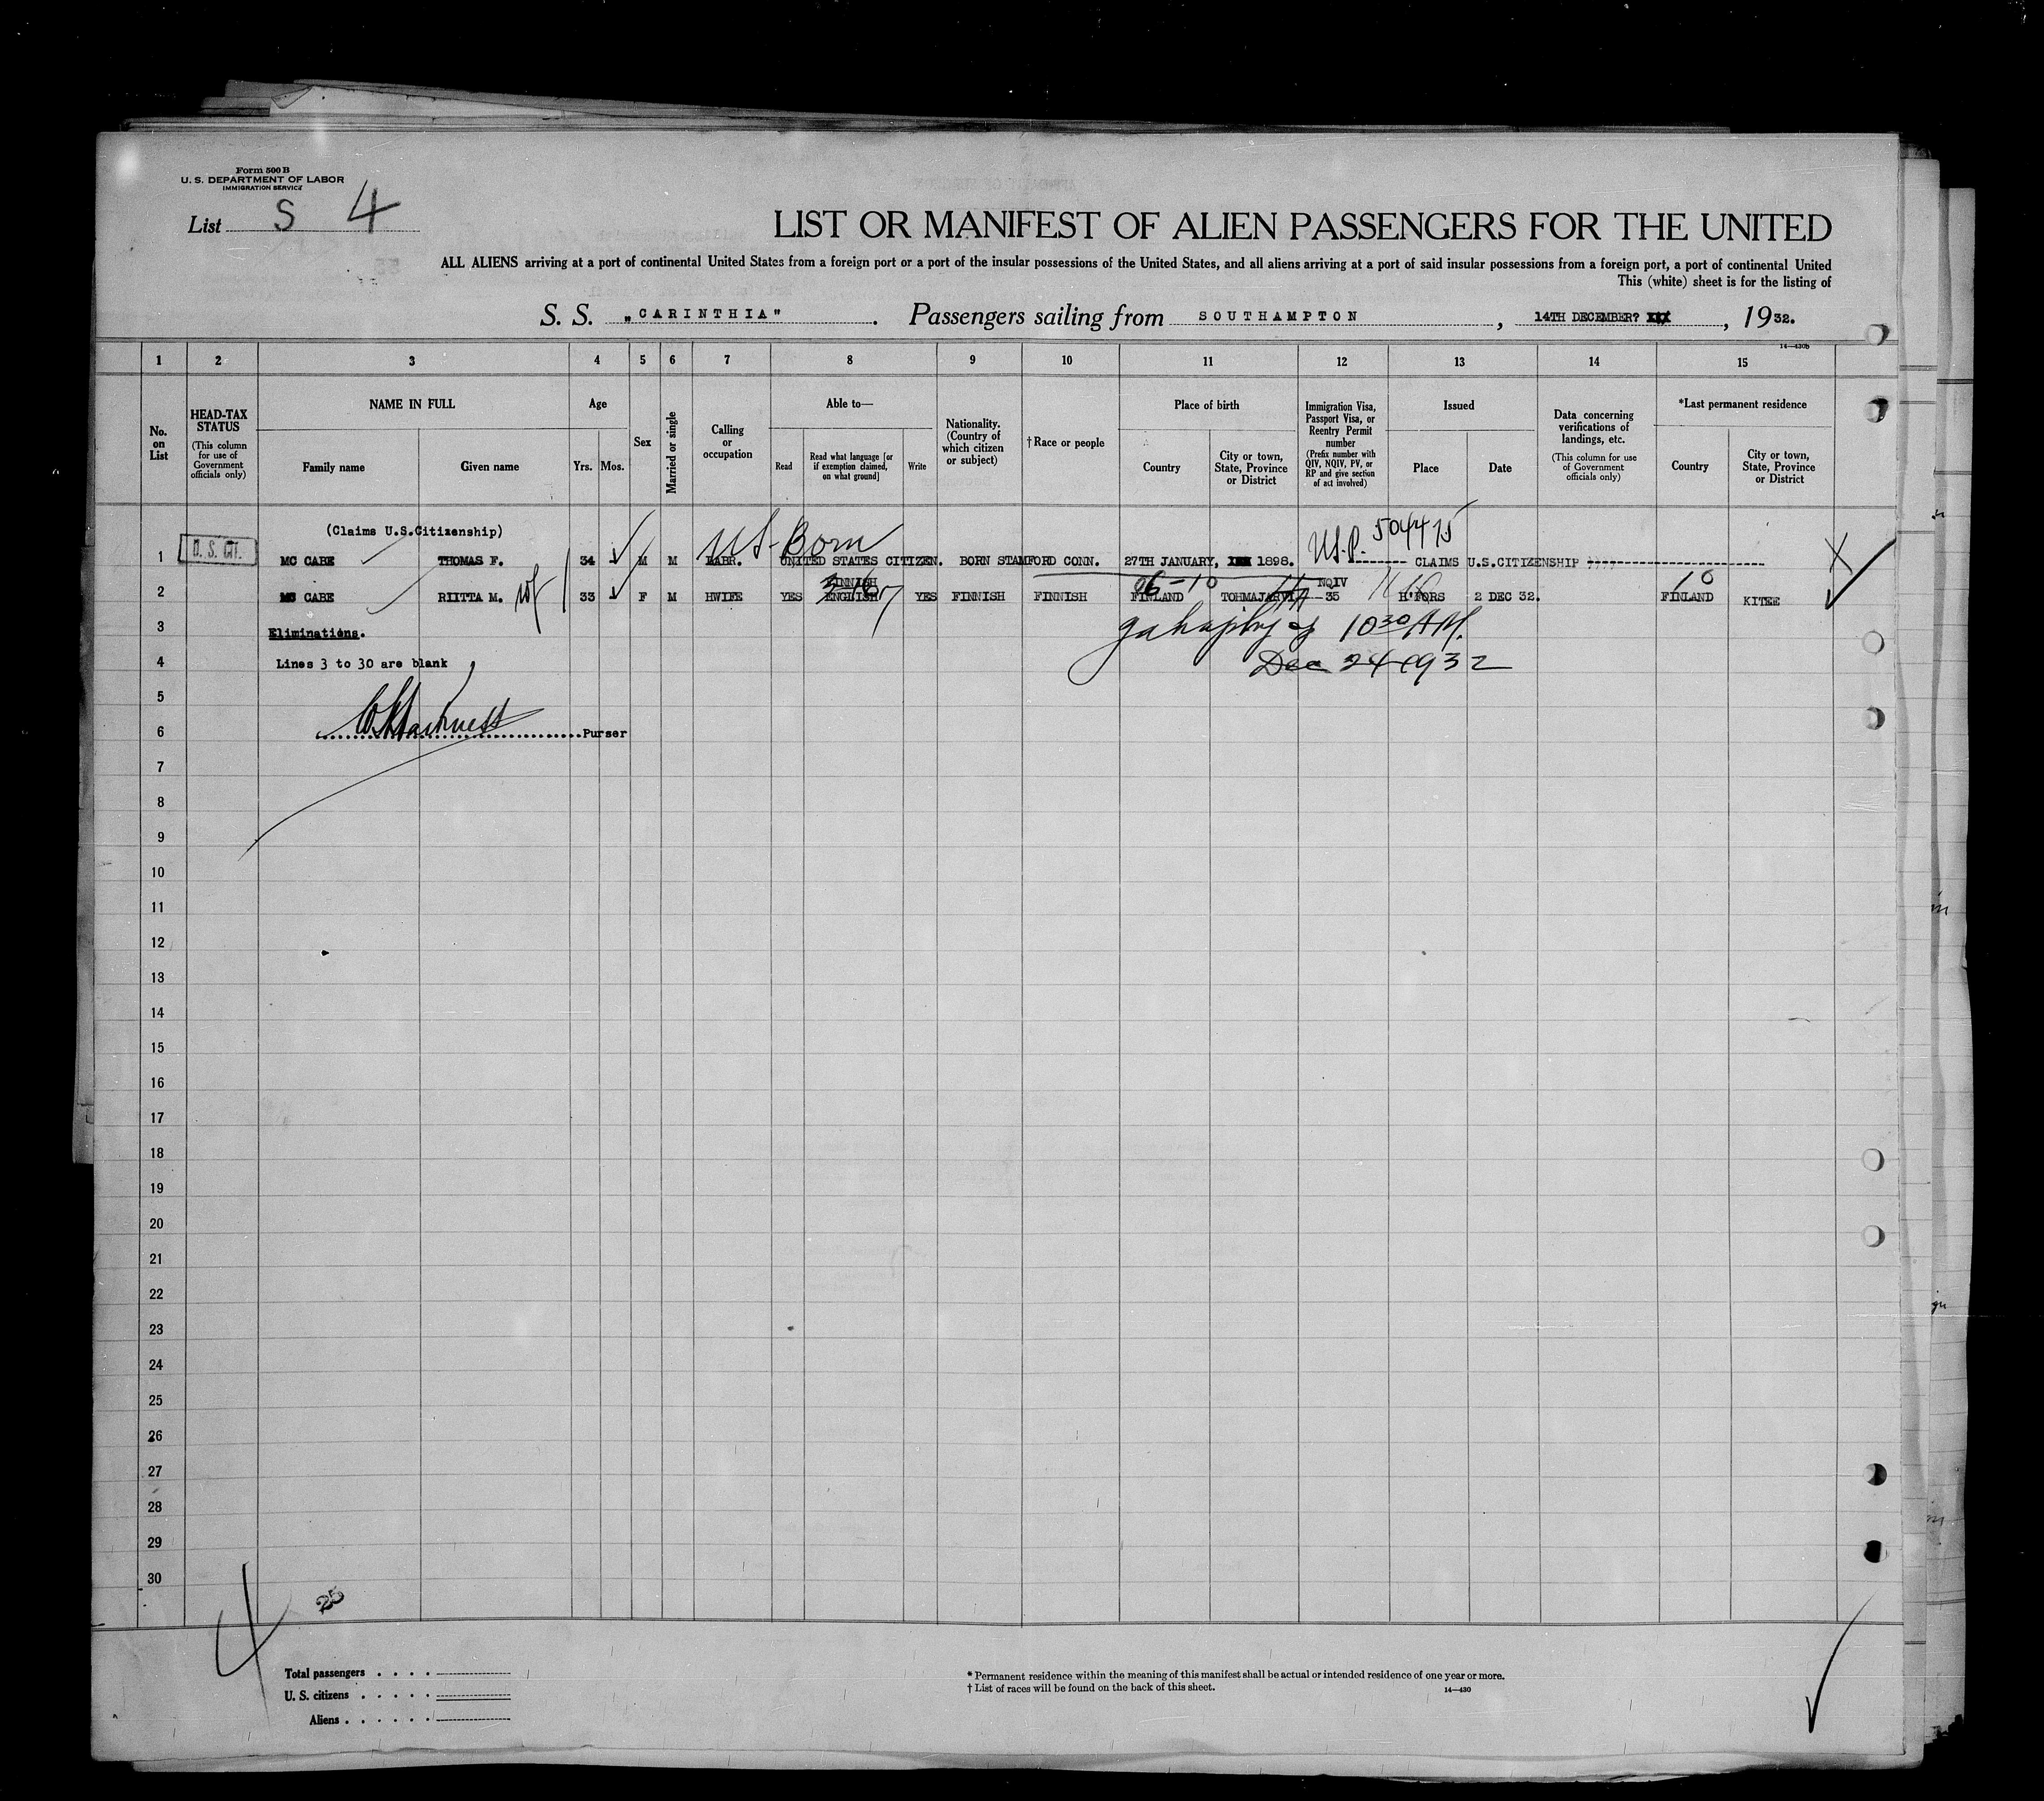 Form 500 B
U. S. DEPARTMENT OF LABOR
IMMIGRATION SERVICE
List S 4
LIST OR MANIFEST OF ALIEN PASSENGERS FOR THE UNITED
ALL ALIENS arriving at a port of continental United States from a foreign port or a port of the insular possessions of the United States, and all aliens arriving at a port of said insular possessions from a foreign port, a port of continental United
This (white) sheet is for the listing of
S. S. „CARINTHIA". Passengers sailing from SOUTHAMPTON, 14TH DECEMBER? XXX, 1932.
14—430b
1 2 3 4 5 6 7 8 9 10 11 12 13 14 15
No. on List
HEAD-TAX STATUS (This column for use of Government officials only)
NAME IN FULL
Family name
Given name
Age
Yrs. Mos.
Sex
Married or single
Calling or occupation
Able to—
Read
Read what language [or if exemption claimed, on what ground]
Write
Nationality. (Country of which citizen or subject)
† Race or people
Place of birth
Country
City or town, State, Province or District
Immigration Visa, Passport Visa, or Reentry Permit number (Prefix number with QIV, NQIV, PV, or RP and give section of act involved)
Issued
Place
Date
Data concerning verifications of landings, etc. (This column for use of Government officials only)
*Last permanent residence
Country
City or town, State, Province or District
(Claims U.S.Citizenship)
US-Born
U.S.P. 504475
1 U. S. CIT. MC CABE THOMAS F. 34 M M LABR. UNITED STATES CITIZEN. BORN STAMFORD CONN. 27TH JANUARY, XXX 1898. CLAIMS U.S.CITIZENSHIP
FINNISH 06-10 NQIV 10
2 MC CABE RIITTA M. wf 33 F M HWIFE YES ENGLISH YES FINNISH FINNISH FINLAND TOHMAJARVI 35 H'FORS 2 DEC 32. FINLAND KITEE
3 Eliminations. 10 30 AM.
4 Lines 3 to 30 are blank Dec 24 1932
5
6 Purser
7
8
9
10
11
12
13
14
15
16
17
18
19
20
21
22
23
24
25
26
27
28
29
30
4
25
Total passengers . . . .
U. S. citizens . . . . .
Aliens . . . . . .
* Permanent residence within the meaning of this manifest shall be actual or intended residence of one year or more.
† List of races will be found on the back of this sheet.
14—430